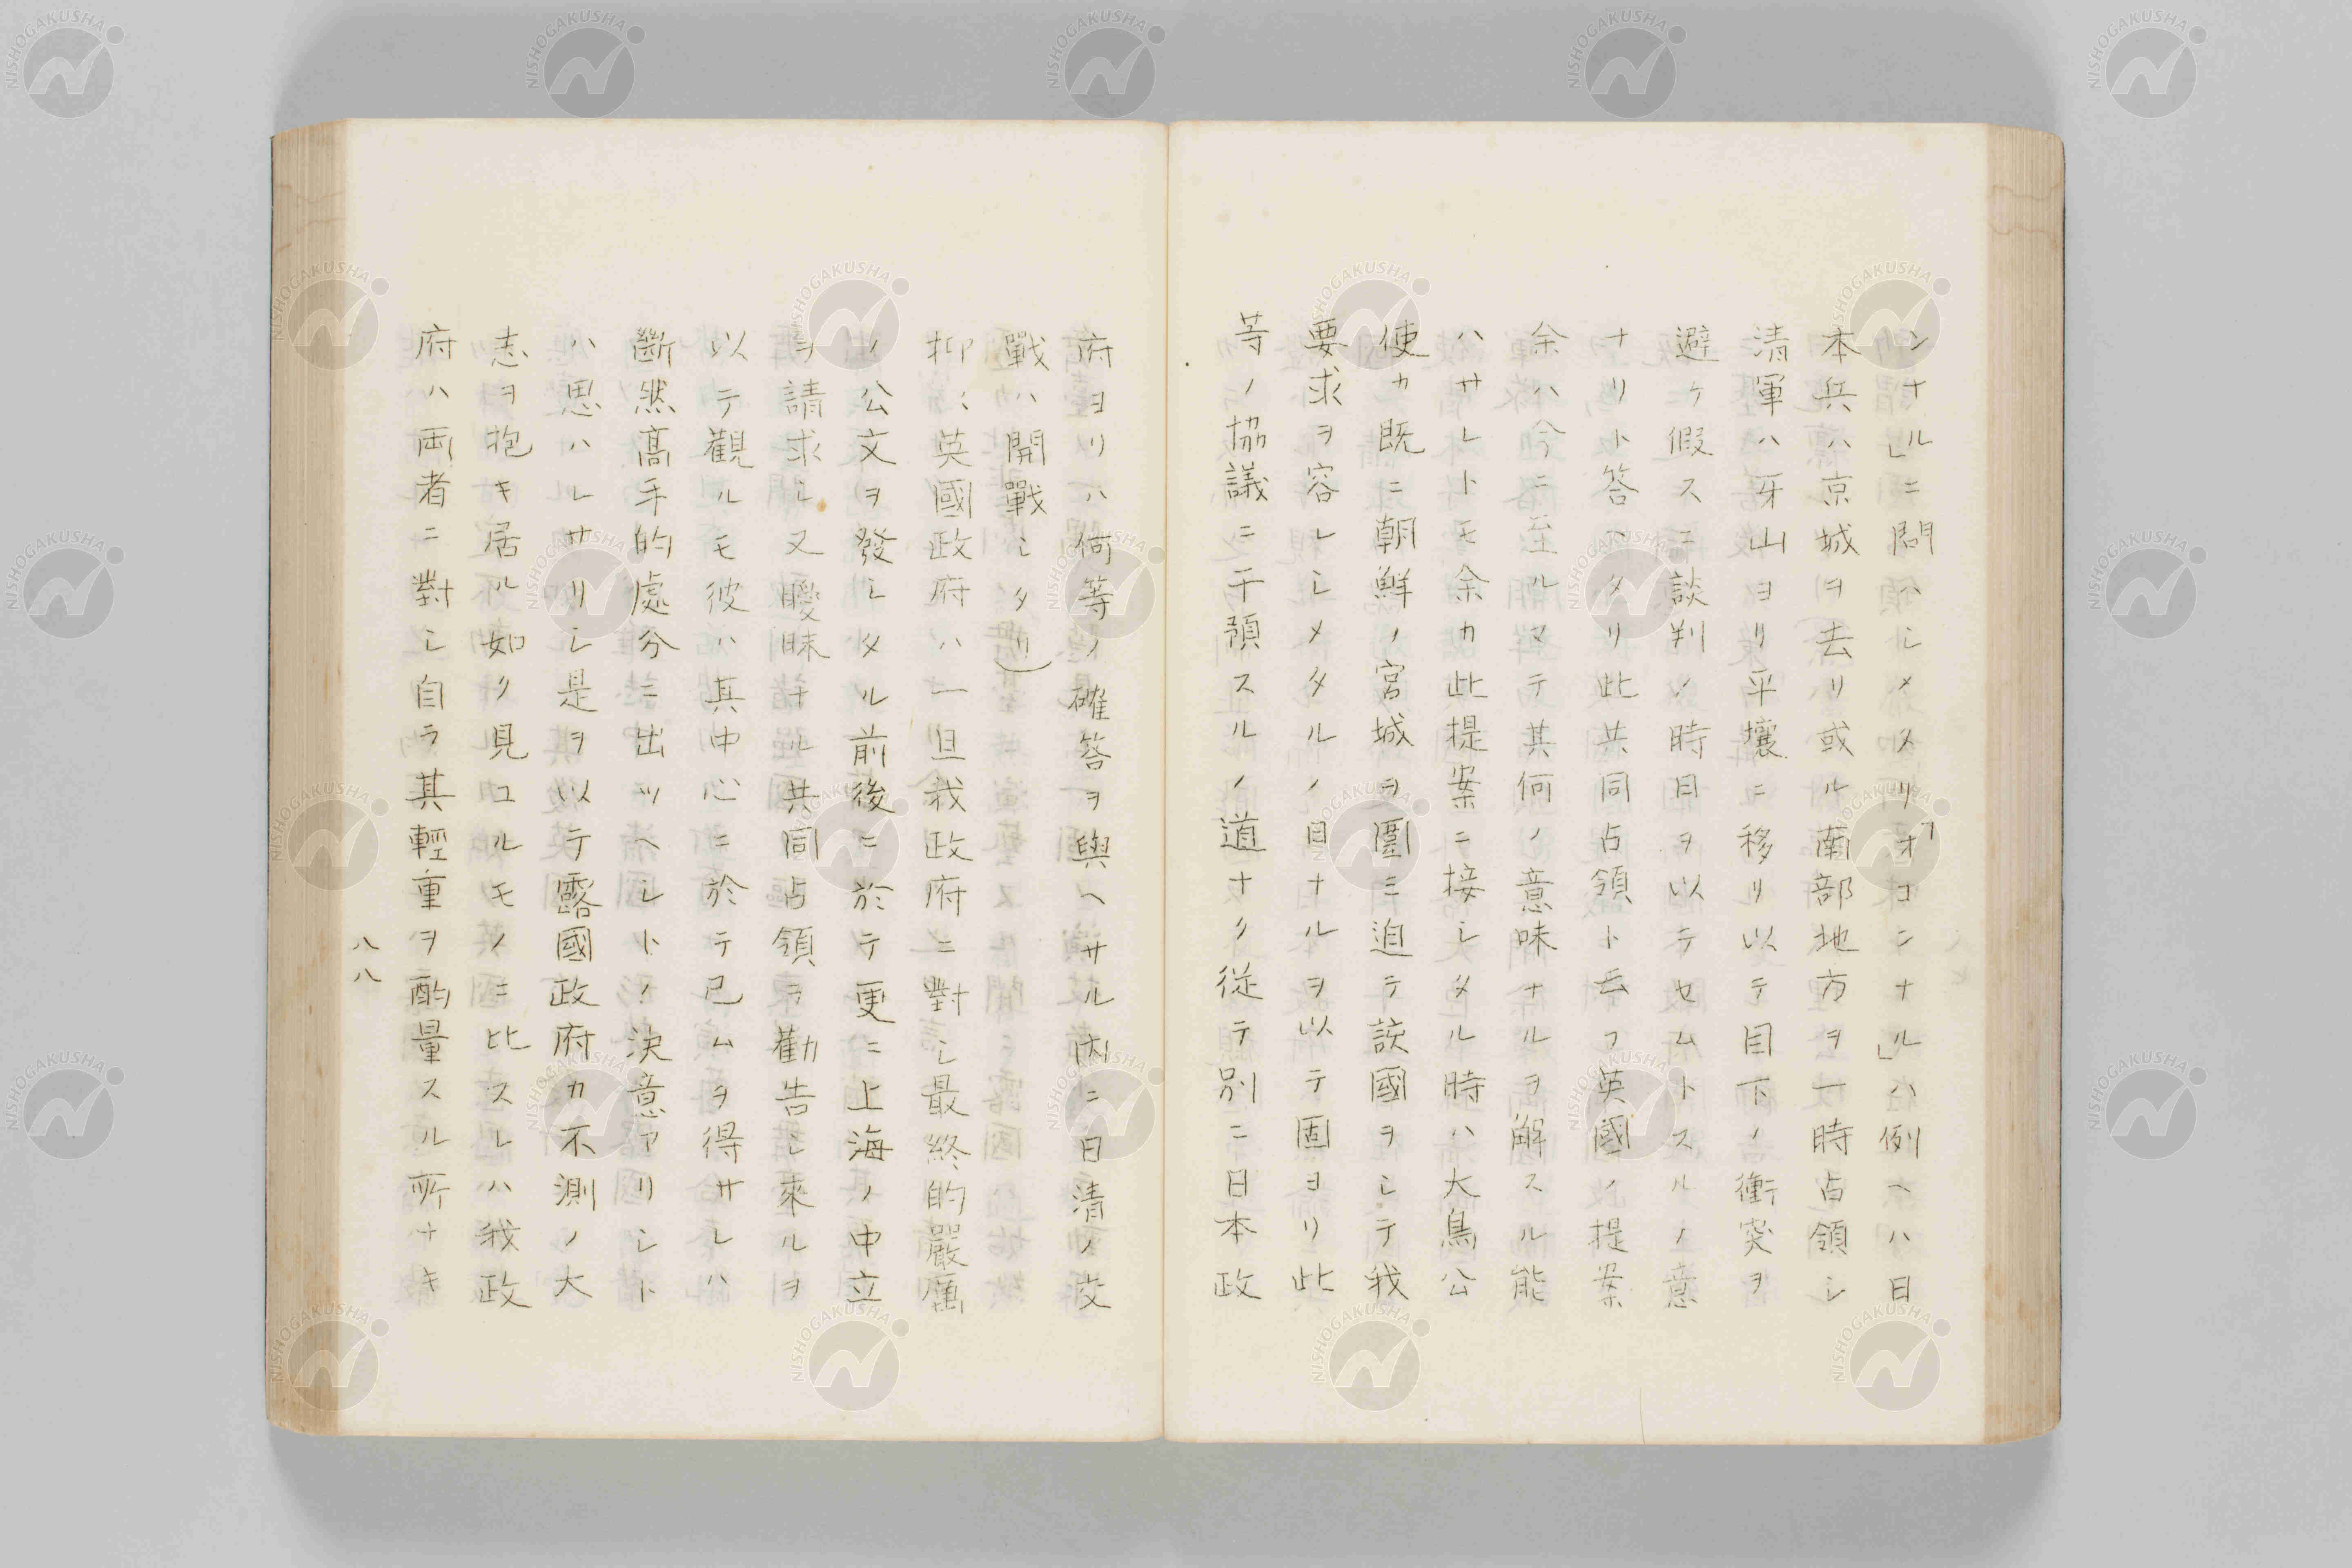 ンナル」ニ問ハシメタリ「オコンナル」ハ例ヘハ日
本兵ハ京城ヲ去リ或ル南部地方ヲ一時占領シ
清軍ハ牙山ヨリ平壤ニ移リ以テ目下ノ衝突ヲ
避ケ假スニ談判ノ時日ヲ以テセムトスルノ意
ナリト答ヘタリ此共同占領ト云フ英國ノ提案
余ハ今ニ至ルマテ其何ノ意味ナルヲ解スル能
ハサレトモ余カ此提案ニ接シタル時ハ大鳥公
使カ既ニ朝鮮ノ宮城ヲ圍ミ迫テ該國ヲシテ我
要求ヲ容レシメタルノ日ナルヲ以テ固ヨリ此
等ノ協議ニ干預スルノ道ナク従テ別ニ日本政
府ヨリハ何等ノ確答ヲ與ヘサル内ニ日清ノ交
戰ハ開戰シタリ)
抑〻英國政府ハ一旦我政府ニ對シ最終的嚴厲
ノ公文ヲ發シタル前後ニ於テ更ニ上海ノ中立
ヲ請求シ又曖昧ナル共同占領ヲ勸告シ來ルヲ
以テ觀ルモ彼ハ其中心ニ於テ已ムヲ得サレハ
斷然高手的處分ニ出ツヘシトノ決意アリシト
ハ思ハレサリシ是ヲ以テ露國政府カ不測ノ大
志ヲ抱キ居ル如ク見ユルモノニ比スレハ我政
府ハ両者ニ對シ自ラ其輕重ヲ酌量スル所ナキ
八八
NISHOGAKUSHA